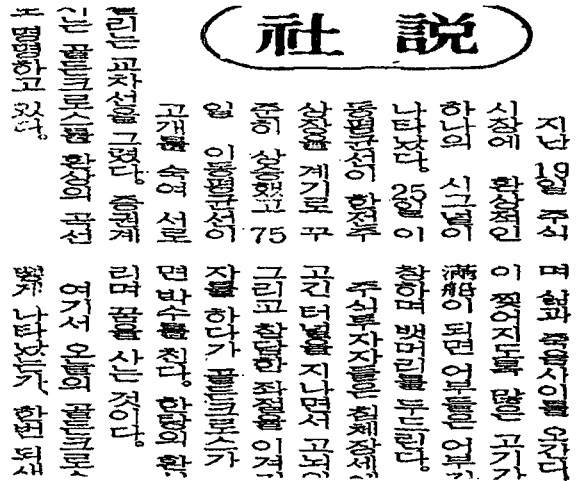 社説
지난 19일 주식
시장에 환상적인
하나의 시그널이
나타났다. 25일 이
동평균선이 한전주
상장을 계기로 꾸
준히 상승했고 75
일 이동평균선이
고개를 숙여 서로
갈리는 교차선을 그렸다. 증권계
서는 골든크로스를 환상의 곡선
로 명명하고 있다.
며 삶과 죽음사이를 오간다.
이 찢어지도록 많은 고기가
滿船이 되면 어부들은
창하며 뱃머리를 두드린다.
주식투자자들은 침체장세
고긴 터널을 지나면서 고뇌
그리고 참담한 좌절을 이겨
자를 하다가 골든크로스가
면 박수를 친다.
리며 꿈을 사는 것이다.
여기서 오늘의 골든크로스
떻게 나타났는가. 한번 되새